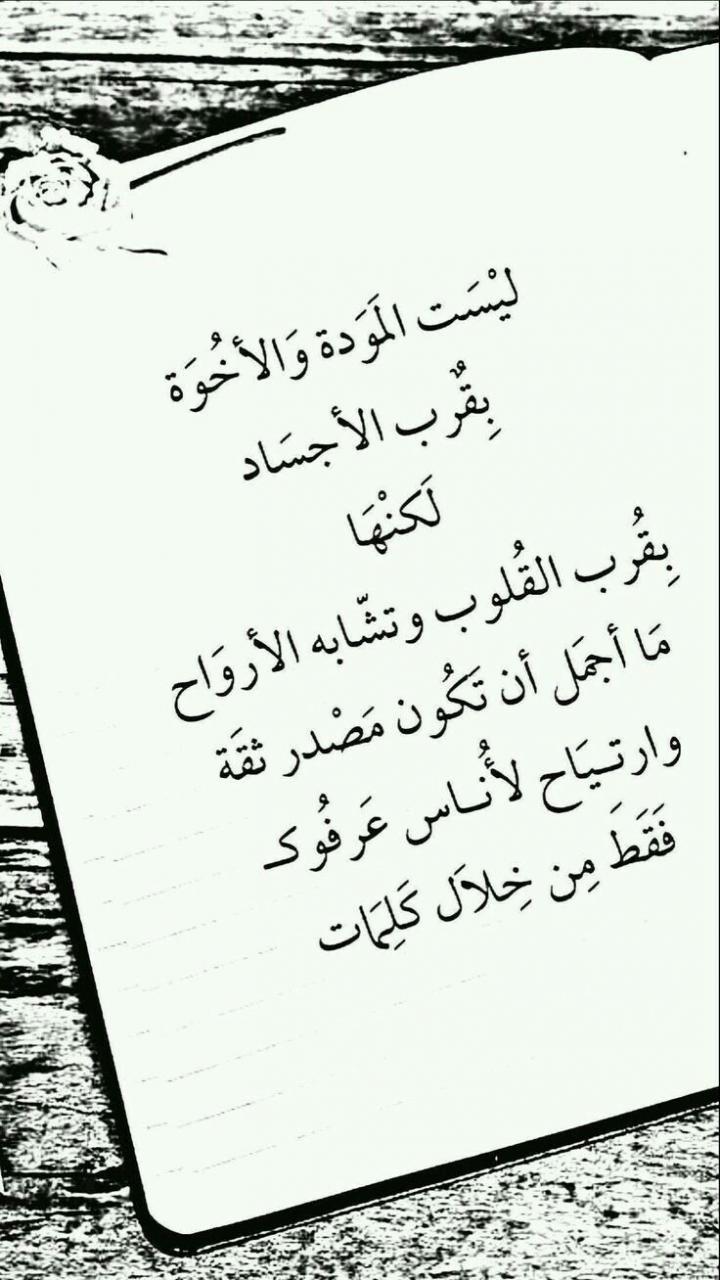 ليْسَت المَوَدة وَالأخُوَة
بِقٌرب الأجسَاد
لَكنْهَا
بِقُرب القُلوب وتشّابه الأروَاح
مَا أجمَل أن تَكُون مَصْدر ثقَة
وارتـيَاح لأُنـاس عَرفُوكـ
فَقَطَ مِن خِلاَل كَلِمَات